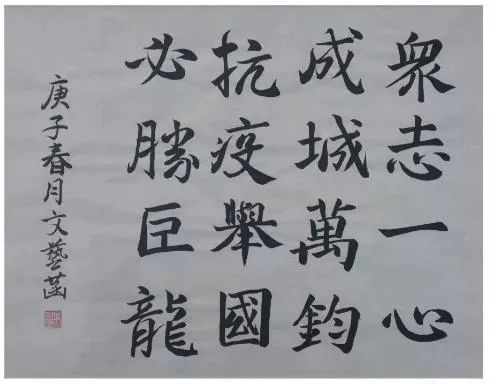 衆志一心
成城萬鈞
抗疫舉國
必勝巨龍
庚子春月文藝菡